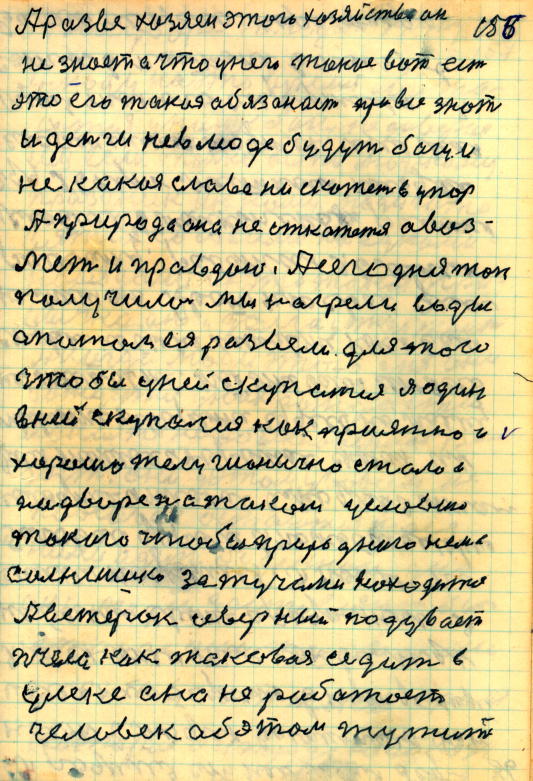 А разве хозяен этого хозяйства он 156
не знает а что у него такое вот ест
это его такая абязаност правие знат
и денги невлюде будут багуи
не какая слава ни скажет в упор
А природа она не откажетя авоз-
мет и правдою. А сегодня так
получилос мы нагрели воды
апотом ея развели. для того
что бы уней скупатся я один
вней скупался как приятно и
хорошо гигионично стало а
на дворе на таком условно
такого чтобы природного нема
солнышико за тучами находитя
А ветерок северный подувает
пчела как таковая седит в
улеке она не работает
человек обэтом тужит